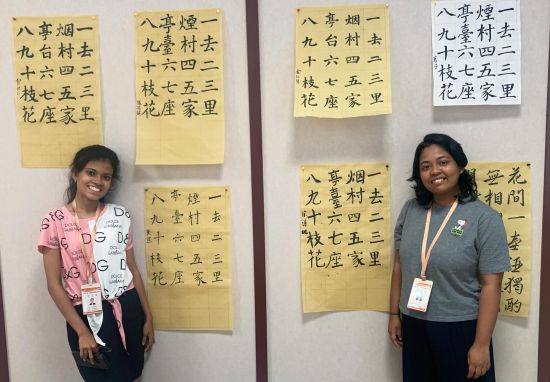 一去二三里
烟村四五家
亭台六七座
八九十枝花
一去二三里
煙村四五家
亭臺六七座
八九十枝花
一去二三里
煙村四五家
亭臺六七座
八九十枝花
一去二三里
烟村四五家
亭台六七座
八九十枝花
一去二三里
煙村四五家
亭臺六七座
八九十枝花
一去二三里
烟村四五家
亭臺六七座
八九十枝花
花間一壺酒獨酌
無相
DG
D&G
DOLCE
GABBANA